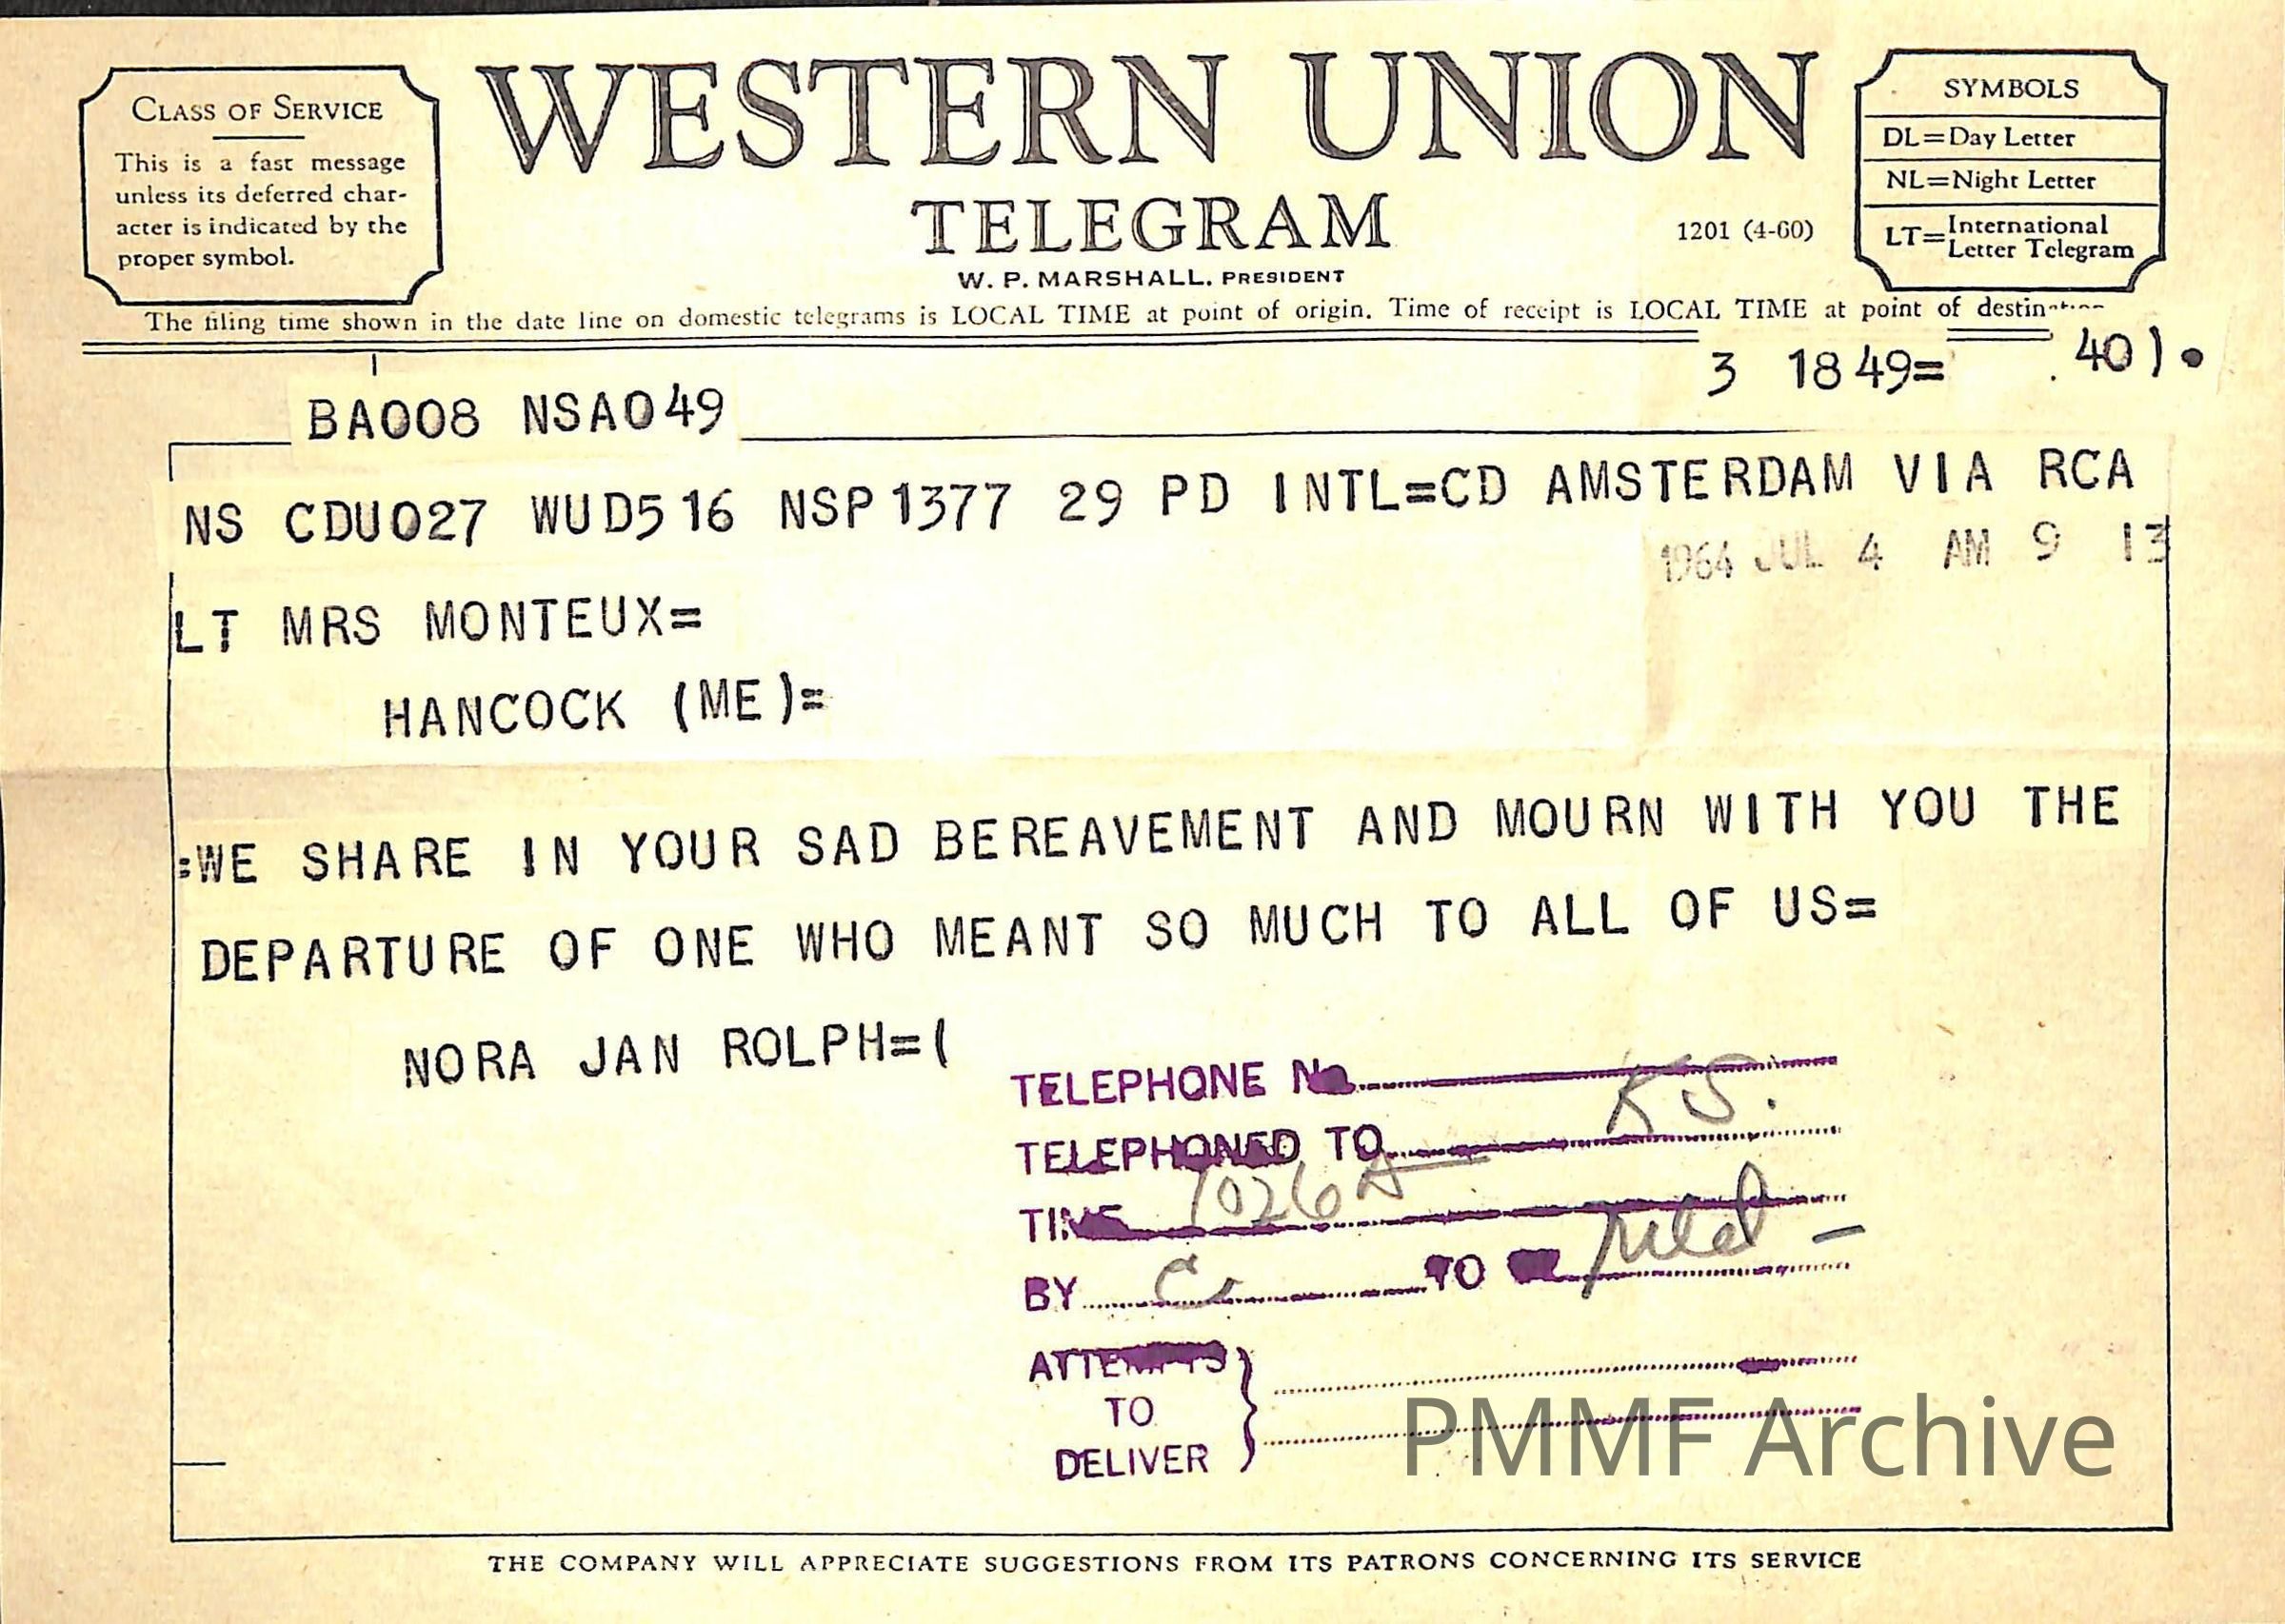 CLASS OF SERVICE
This is a fast message
unless its deferred char-
acter is indicated by the
proper symbol.
WESTERN UNION
TELEGRAM
W. P. MARSHALL, PRESIDENT
1201 (4-60)
SYMBOLS
DL=Day Letter
NL=Night Letter
LT=International
Letter Telegram
The filing time shown in the date line on domestic telegrams is LOCAL TIME at point of origin. Time of receipt is LOCAL TIME at point of
3 1849= .40).
BA008 NSA049
NS CDU027 WUD516 NSP1377 29 PD INTL=CD AMSTERDAM VIA RCA
1964 JUL 4 AM 9 13
LT MRS MONTEUX=
HANCOCK (ME)=
:WE SHARE IN YOUR SAD BEREAVEMENT AND MOURN WITH YOU THE
DEPARTURE OF ONE WHO MEANT SO MUCH TO ALL OF US=
NORA JAN ROLPH=(
TELEPHONE No.
TELEPHONED TO KS.
TIME 1026A
BY C TO
ATTEMPTS
TO
DELIVER
PMMF Archive
THE COMPANY WILL APPRECIATE SUGGESTIONS FROM ITS PATRONS CONCERNING ITS SERVICE